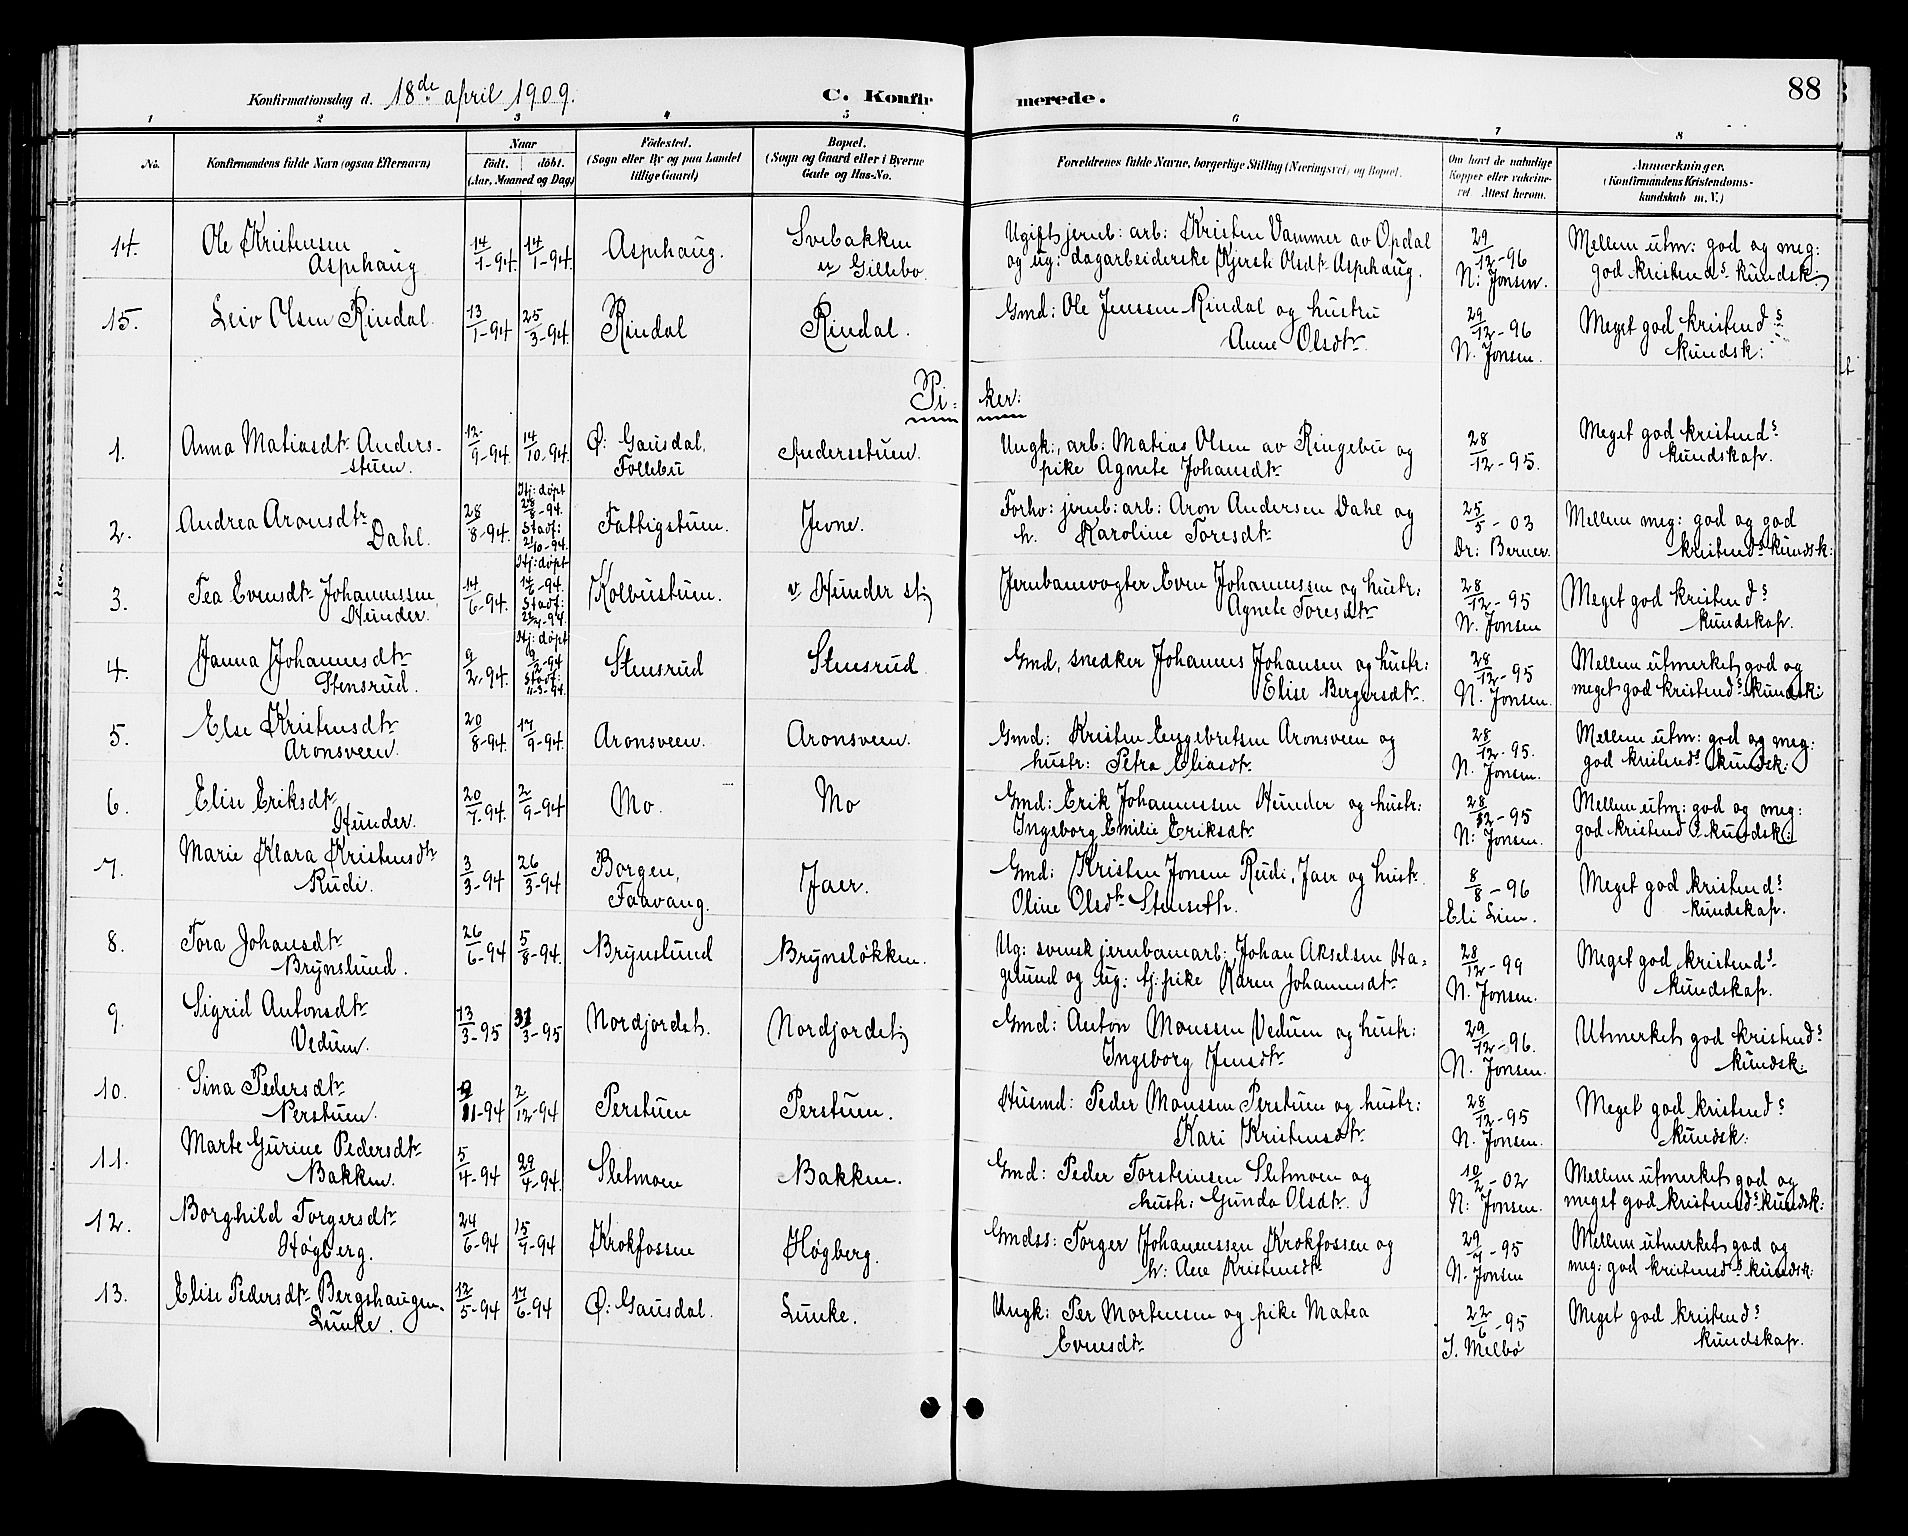 Konfirmationsdag d. 18de april 1909. C. Konfirmerede. 88
1 2 3 4 5 6 7 8
No. Konfirmandens fulde Navn (ogsaa Efternavn) Naar født. døbt. (Aar, Maaned og Dag) Fødested. (Sogn eller By og paa Landet tillige Gaard) Bopæl. (Sogn og Gaard eller i Byerne Gade og Hus-No. Forældrenes fulde Navne, borgerlige Stilling (Næringsvei) og Bopæl. Om havt de naturlige Kopper eller vakcineret. Attest herom. Anmerkninger. (Konfirmandens Kristendomskundskab m. V.)
14. Ole Kristensen Asphaug 14/1-94. 14/1-94. Asphaug. Svebakken v Gillebo Ugift jernb: arb: Kristen Vammer av Opdal og ug: dagarbeiderske Kjersti Olsdtr Asphaug. 29/12-96 N. Jonsen. Mellem utm: god og meg: god kristends kundsk:
15. Leiv Olsen Rindal. 13/1-94 25/3-94. Rindal Rindal. Gmd: Ole Jenssen Rindal og hustru Anne Olsdtr 29/12-96 N. Jonsen. Meget god kristends kundsk:
Piker:
1. Anna Matiasdtr Andersstuen. 12/9-94. 14/10-94. Ø: Gausdal, Follebu Andersstuen. Ungk:, arb: Matias Olsen av Ringebu og pike Agnete Johansdtr 28/12-95. Meget god kristends kundskap.
2. Andrea Aronsdtr Dahl. 28/8-94. Hj: døpt 28/8-94. Stadf: 21/10-94. Fattigstuen. Jevne. Forhv: jernb: arb: Aron Andersen Dahl og h. Karoline Toresdtr 25/5-03 Dr: Berner. Mellem meg: god og god kristends kundsk:
3. Tea Evensdtr Johannssen Hunder. 14/6-94. Hj: døpt 14/6-94. Stadf: Kolbustuen. v Hunder st; Jernbanevogter Even Johannessen og hustr: Agnete Toresdtr 28/12-95 N. Jonsen Meget god kristends kundskap.
4. Janna Johannesdtr Stensrud. 9/2-94. Hj: døpt 9/2-94 Stadf: 4-3-94. Stensrud Stensrud. Gmd, snedker Johannes Johansen og hustr: Elise Bergersdtr 28/12-95 N. Jonsen. Mellem utmerket god og meget god kristends kundsk:
5. Else Kristensdtr Aronsveen. 20/8-94. 17/9-94. Aronsveen. Aronsveen. Gmd: Kristen Engebretsen Aronsveen og hustr: Petra Eliasdtr 28/12-95. N. Jonsen. Mellem utm: god og meg: god kristends kundsk:
6. Elise Eriksdtr Hunder. 20/7-94. 2/9-94 Mo. Mo Gmd: Erik Johannessen Hunder og hustr: Ingeborg Emilie Eriksdtr 28/12-95 N: Jonsen. Mellem utm: god og meg: god kristends kundsk:
7. Marie Klara Kristensdtr Rudi. 3/3-94 26/3-94 Borgen, Faavang. Jaer. Gmd: Kristen Jonsen Rudi, Jaer og hustr Oline Olsdtr Stenseth. 8/8-96 Eli Lien. Meget god kristends kundskap.
8. Tora Johansdtr Brynslund. 26/6-94 5/8-94. Brynslund Brynsløkken. Ug: svensk jernbanearb: Johan Akselsen Hagelund og ug: tj.pike Karen Johannesdtr 28/12-99 N. Jonsen. Meget god kristends kundskap.
9. Sigrid Antonsdtr Vedum. 13/3-95 31/3-95 Nordjordet. Nordjordet, Gmd: Anton Monssen Vedum og hustr: Ingeborg Jensdtr 29/12-96. N. Jonsen. Utmerket god kristends kundsk:
10. Sina Pedersdtr Perstuen. 11-94 2/12-94 Perstuen Perstuen. Husmd: Peder Monssen Perstuen og hustr: Kari Kristensdtr 28/12-95 N. Jonsen. Meget god kristends kundsk:
11. Marte Gurine Pedersdtr Bakken. 5/4-94 29/4-94. Sletmoen Bakken. Gmd: Peder Torsteinsen Sletmoen og hustr: Gunda Olsdtr. 10/2-02 N: Jonsen. Mellem utmerket god og meget god kristends kundsk:
12. Borghild Torgersdtr Høgberg. 24/6-94 15/7-94 Krokfossen Høgberg. Gmdss: Torger Johannessen Krokfossen og h: Ane Kristensdtr 29/7-95 N. Jonsen Mellem utmerket god og meg: god kristends kundsk:
13. Elise Pedersdtr Bergshaugen. Lunke. 12/5-94 17/6-94 Ø: Gausdal. Lunke. Ungk: Per Mortensen og pike Matea Evensdtr 22/6-95 J. Melbø Meget god kristends kundskap.